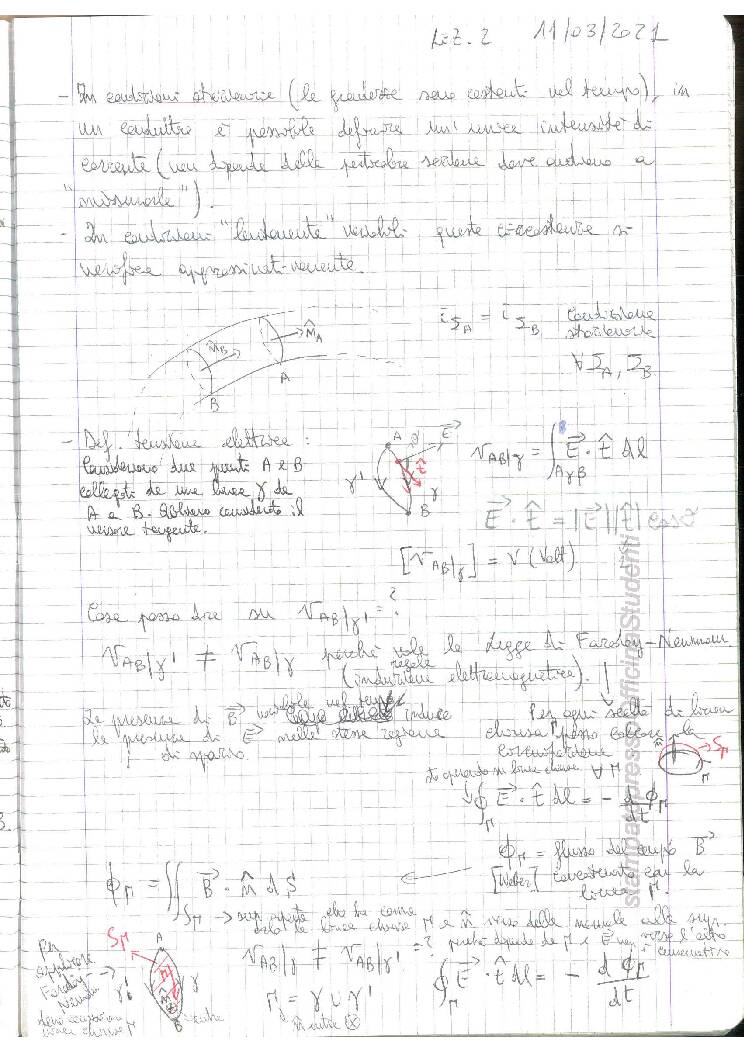 Lez. 2 11/03/2021
- In condizioni stazionarie (le grandezze sono costanti nel tempo), in
un conduttore è possibile definire un'unica intensità di
corrente (non dipende dalla particolare sezione dove andiamo a
"misurarla").
- In condizioni "lentamente" variabili questa circostanza si
verifica approssimativamente.
n̂_B
n̂_A
A
B
i_Σ_A = i_Σ_B condizione
stazionaria
∀ Σ_A, Σ_B
- Def. tensione elettrica:
Consideriamo due punti A e B
collegati da una linea γ da
A a B. considerato il
versore tangente.
A E⃗
γ' t̂ γ
B
v_AB|γ = ∫_AγB E⃗ · t̂ dl
E⃗ · t̂ = |E⃗||t̂| cosϑ
[v_AB|γ] = V (Volt)
Cosa posso dire su v_AB|γ' = ?
v_AB|γ' ≠ v_AB|γ perché vale la legge di Faraday-Neumann.
regola
(induzione elettromagnetica). !
La presenza di B⃗ variabile nel tempo induce
la presenza di E⃗ nella stessa regione
di spazio.
Per ogni scelta di linea
chiusa posso calcolare la
circuitazione
sto operando su linea chiusa ∀ Γ
n̂ S_Γ
Γ
∮_Γ E⃗ · t̂ dl = - d/dt ϕ_Γ
ϕ_Γ = flusso del campo B⃗
[Weber] concatenato con la
linea Γ.
ϕ_Γ = ∬_S_Γ B⃗ · n̂ dS
→ superficie che ha come
la linea chiusa Γ e n̂ verso della normale alla sup.
Per
applicare
Faraday-
Neumann
devo considerare
linea chiusa Γ
S_Γ
A
γ' γ
n̂ ⊗
B
entra
v_AB|γ ≠ v_AB|γ' = ?
Γ = γ ∪ γ'
n̂ entra ⊗
∮_Γ E⃗ · t̂ dl = - dϕ_Γ/dt
stampato presso OfficinaStudenti